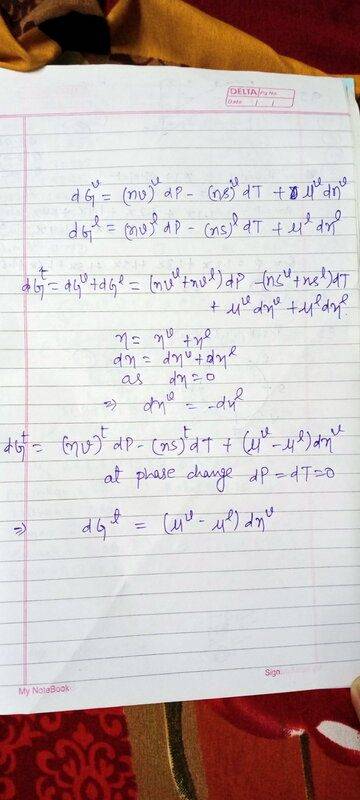 DELTA Pg No.
Date / /
dG^v = (nv)^v dP - (ns)^v dT + μ^v dn^v
dG^l = (nv)^l dP - (ns)^l dT + μ^l dn^l
dG^t = dG^v + dG^l = (nv^v + nv^l) dP - (ns^v + ns^l) dT
+ μ^v dn^v + μ^l dn^l
n = n^v + n^l
dn = dn^v + dn^l
as dn = 0
⇒ dn^v = -dn^l
dG^t = (nv)^t dP - (ns)^t dT + (μ^v - μ^l) dn^v
at phase change dP = dT = 0
⇒ dG^t = (μ^v - μ^l) dn^v
Sign.
My NoteBook